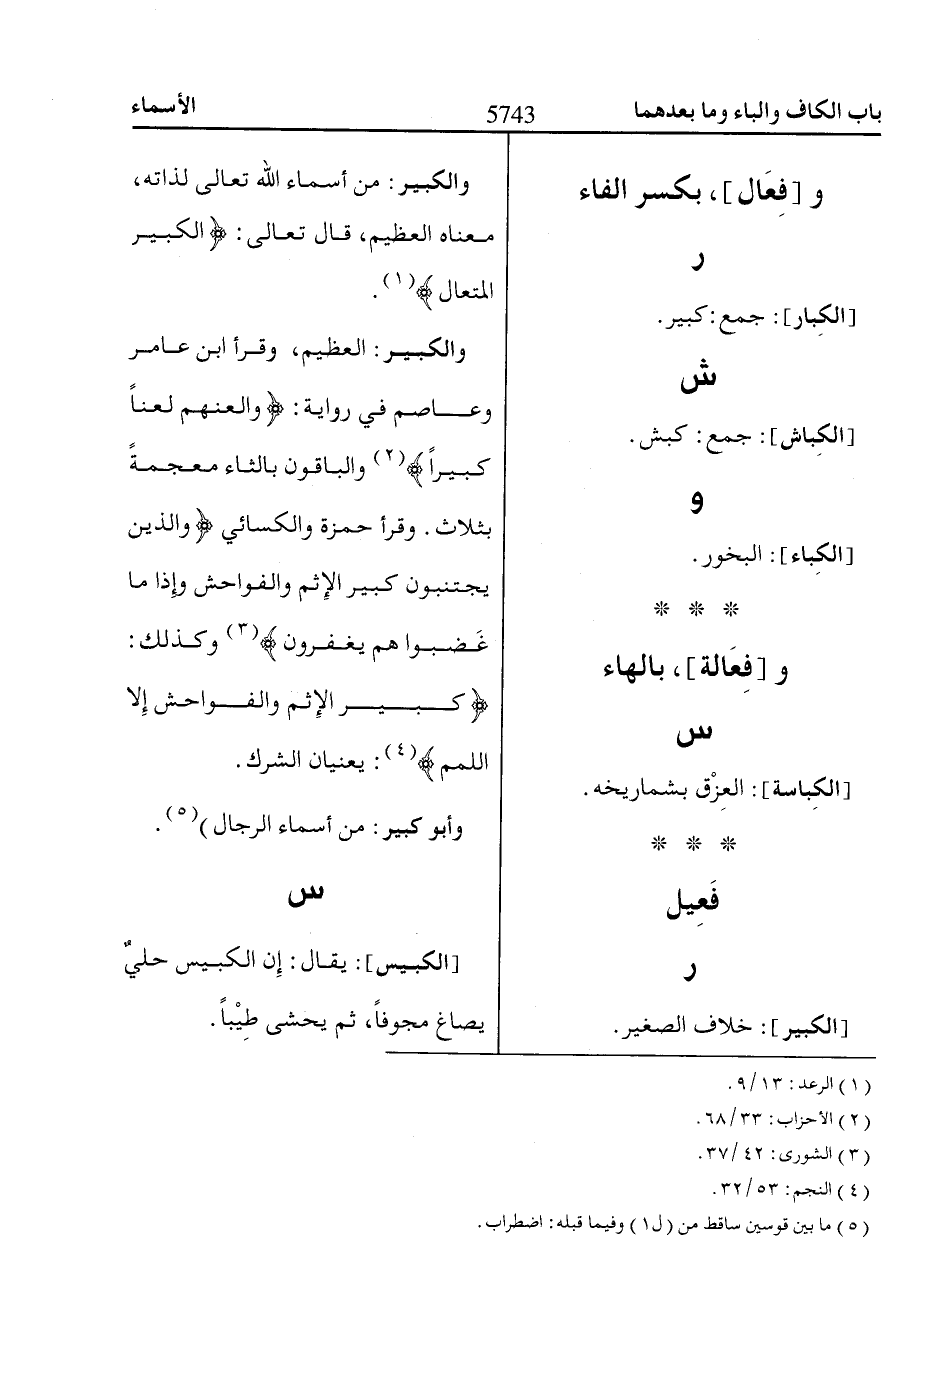 باب الكاف والباء وما بعدهما
5743
الأسماء
و [فِعَال]، بكسر الفاء
ر
[الكِبار]: جمع: كبير.
ش
[الكِباش]: جمع: كبش.
و
[الكِباء]: البخور.
❊ ❊ ❊
و [فِعَالة]، بالهاء
س
[الكِباسة]: العِزْق بشماريخه.
❊ ❊ ❊
فَعِيل
ر
[الكبير]: خلاف الصغير.
والكبير: من أسماء الله تعالى لذاته،
معناه العظيم، قال تعالى: ﴿الكبير
المتعال﴾(١).
والكبير: العظيم، وقرأ ابن عامر
وعاصم في رواية: ﴿والعنهم لعناً
كبيراً﴾(٢) والباقون بالثاء معجمةً
بثلاث. وقرأ حمزة والكسائي ﴿والذين
يجتنبون كبير الإثم والفواحش وإذا ما
غَضبوا هم يغفرون﴾(٣) وكذلك:
﴿كبير الإثم والفواحش إلا
اللمم﴾(٤): يعنيان الشرك.
وأبو كبير: من أسماء الرجال)(٥).
س
[الكبيس]: يقال: إن الكبيس حليٌ
يصاغ مجوفاً، ثم يحشى طِيْباً.
(١) الرعد: ٩/١٣.
(٢) الأحزاب: ٦٨/٣٣.
(٣) الشورى: ٣٧/٤٢.
(٤) النجم: ٣٢/٥٣.
(٥) ما بين قوسين ساقط من (ل١) وفيما قبله: اضطراب.